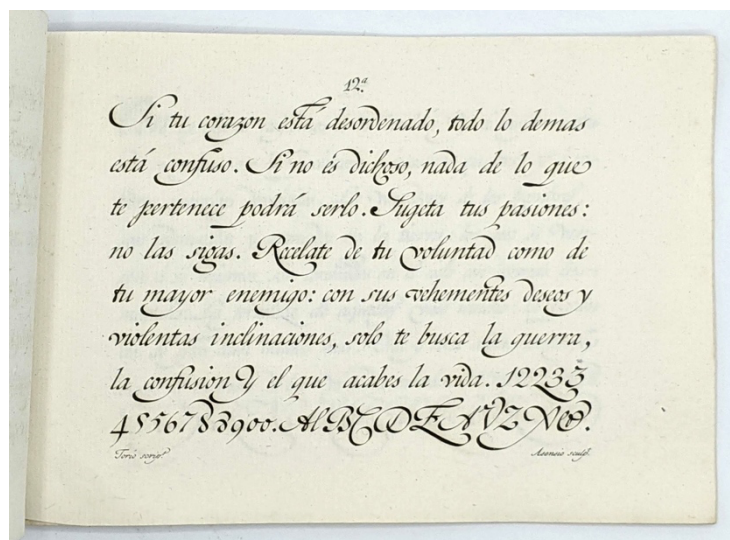 12ª
Si tu corazon está desordenado, todo lo demas
está confuso. Si no és dichoso, nada de lo que
te pertenece podrá serlo. Sugeta tus pasiones:
no las sigas. Recelate de tu voluntad como de
tu mayor enemigo: con sus vehementes deseos y
violentas inclinaciones, solo te busca la guerra,
la confusion y el que acabes la vida. 12233
4556788900. A B C D E
Torio scrip.ᵗ Asensio sculp.ᵗ